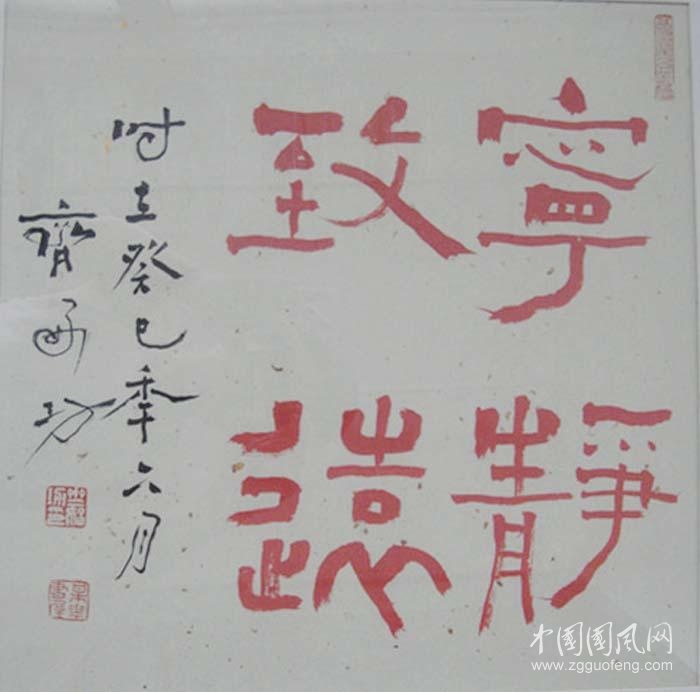 寧靜
致遠
时在癸巳年六月
中國國风网
www.zgguofeng.com